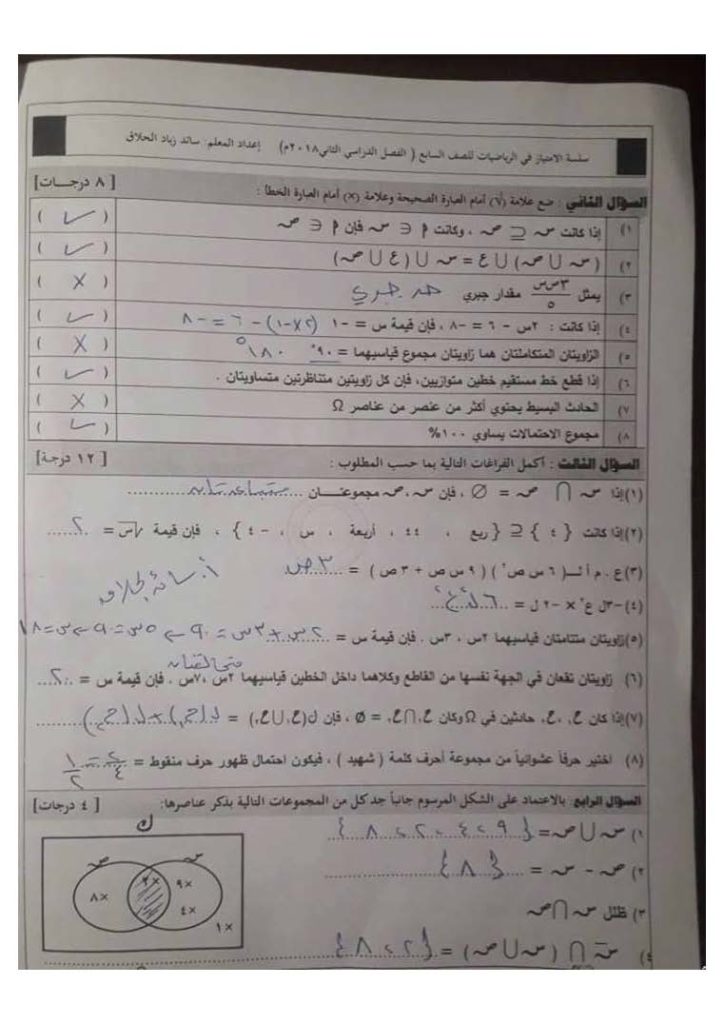 سلسلة الامتياز في الرياضيات للصف السابع ( الفصل الدراسي الثاني ٢٠١٨م) إعداد المعلم: سائد زياد الحلاق
السؤال الثاني : ضع علامة (√) أمام العبارة الصحيحة وعلامة (×) أمام العبارة الخطأ : [ ٨ درجـــات]
١) إذا كانت س ⊆ ص ، وكانت م ∈ س فإن م ∈ ص ( ✓ )
٢) (س ∪ ص) ∪ ع = س ∪ (ع ∪ ص) ( ✓ )
٣) يمثل ٣س‌ص/٥ مقدار جبري حد جبري ( × )
٤) إذا كانت : ٢س - ٦ = -٨ ، فإن قيمة س = -١ (٢×-١) - ٦ = -٨ ( ✓ )
٥) الزاويتان المتكاملتان هما زاويتان مجموع قياسيهما = ٩٠° ١٨٠° ( × )
٦) إذا قطع خط مستقيم خطين متوازيين، فإن كل زاويتين متناظرتين متساويتان . ( ✓ )
٧) الحادث البسيط يحتوي أكثر من عنصر من عناصر Ω ( × )
٨) مجموع الاحتمالات يساوي ١٠٠% ( ✓ )
السؤال الثالث : أكمل الفراغات التالية بما حسب المطلوب : [ ١٢ درجة]
(١) إذا س ∩ ص = ∅ ، فإن س، ص مجموعتـــان متباعدتان
(٢) إذا كانت { ٤ } ⊆ { ربع ، ٤٤ ، أربعة ، س ، -٤ } ، فإن قيمة √س = ٢
(٣) ع . م . أ لـ ( ٦ س ص٢ ) ( ٩ س ص + ٣ ص ) = ٣ ص
أ. سائد الحلاق
(٤) -٣ل ع٢ × -٢ ل = ٦ل٢ع٢
(٥) زاويتان متتامتان قياسيهما ٢س ، ٣س . فإن قيمة س = ٢س + ٣س = ٩٠ ← ٥س = ٩٠ ← س = ١٨
متحالفتان
(٦) زاويتان تقعان في الجهة نفسها من القاطع وكلاهما داخل الخطين قياسيهما ٢س ،٧س . فإن قيمة س = ٢٠
(٧) إذا كان ع١ ،ع٢ حادثين في Ω وكان ع١∩ع٢ = ∅ ، فإن ل(ع١∪ع٢) = ل(ع١) + ل(ع٢)
(٨) اختير حرفاً عشوائياً من مجموعة أحرف كلمة ( شهيد ) ، فيكون احتمال ظهور حرف منقوط = ٢/٤ = ١/٢
السؤال الرابع: بالاعتماد على الشكل المرسوم جانباً جد كل من المجموعات التالية بذكر عناصرها: [ ٤ درجات]
ك
ص س
٨× ٢× ٩× ٤× ١×
١) س ∪ ص = { ٩ ، ٤ ، ٢ ، ٨ }
٢) ص - س = { ٨ }
٣) ظلل س ∩ ص
٤) س̅ ∩ (س ∪ ص) = { ٢ ، ٨ }